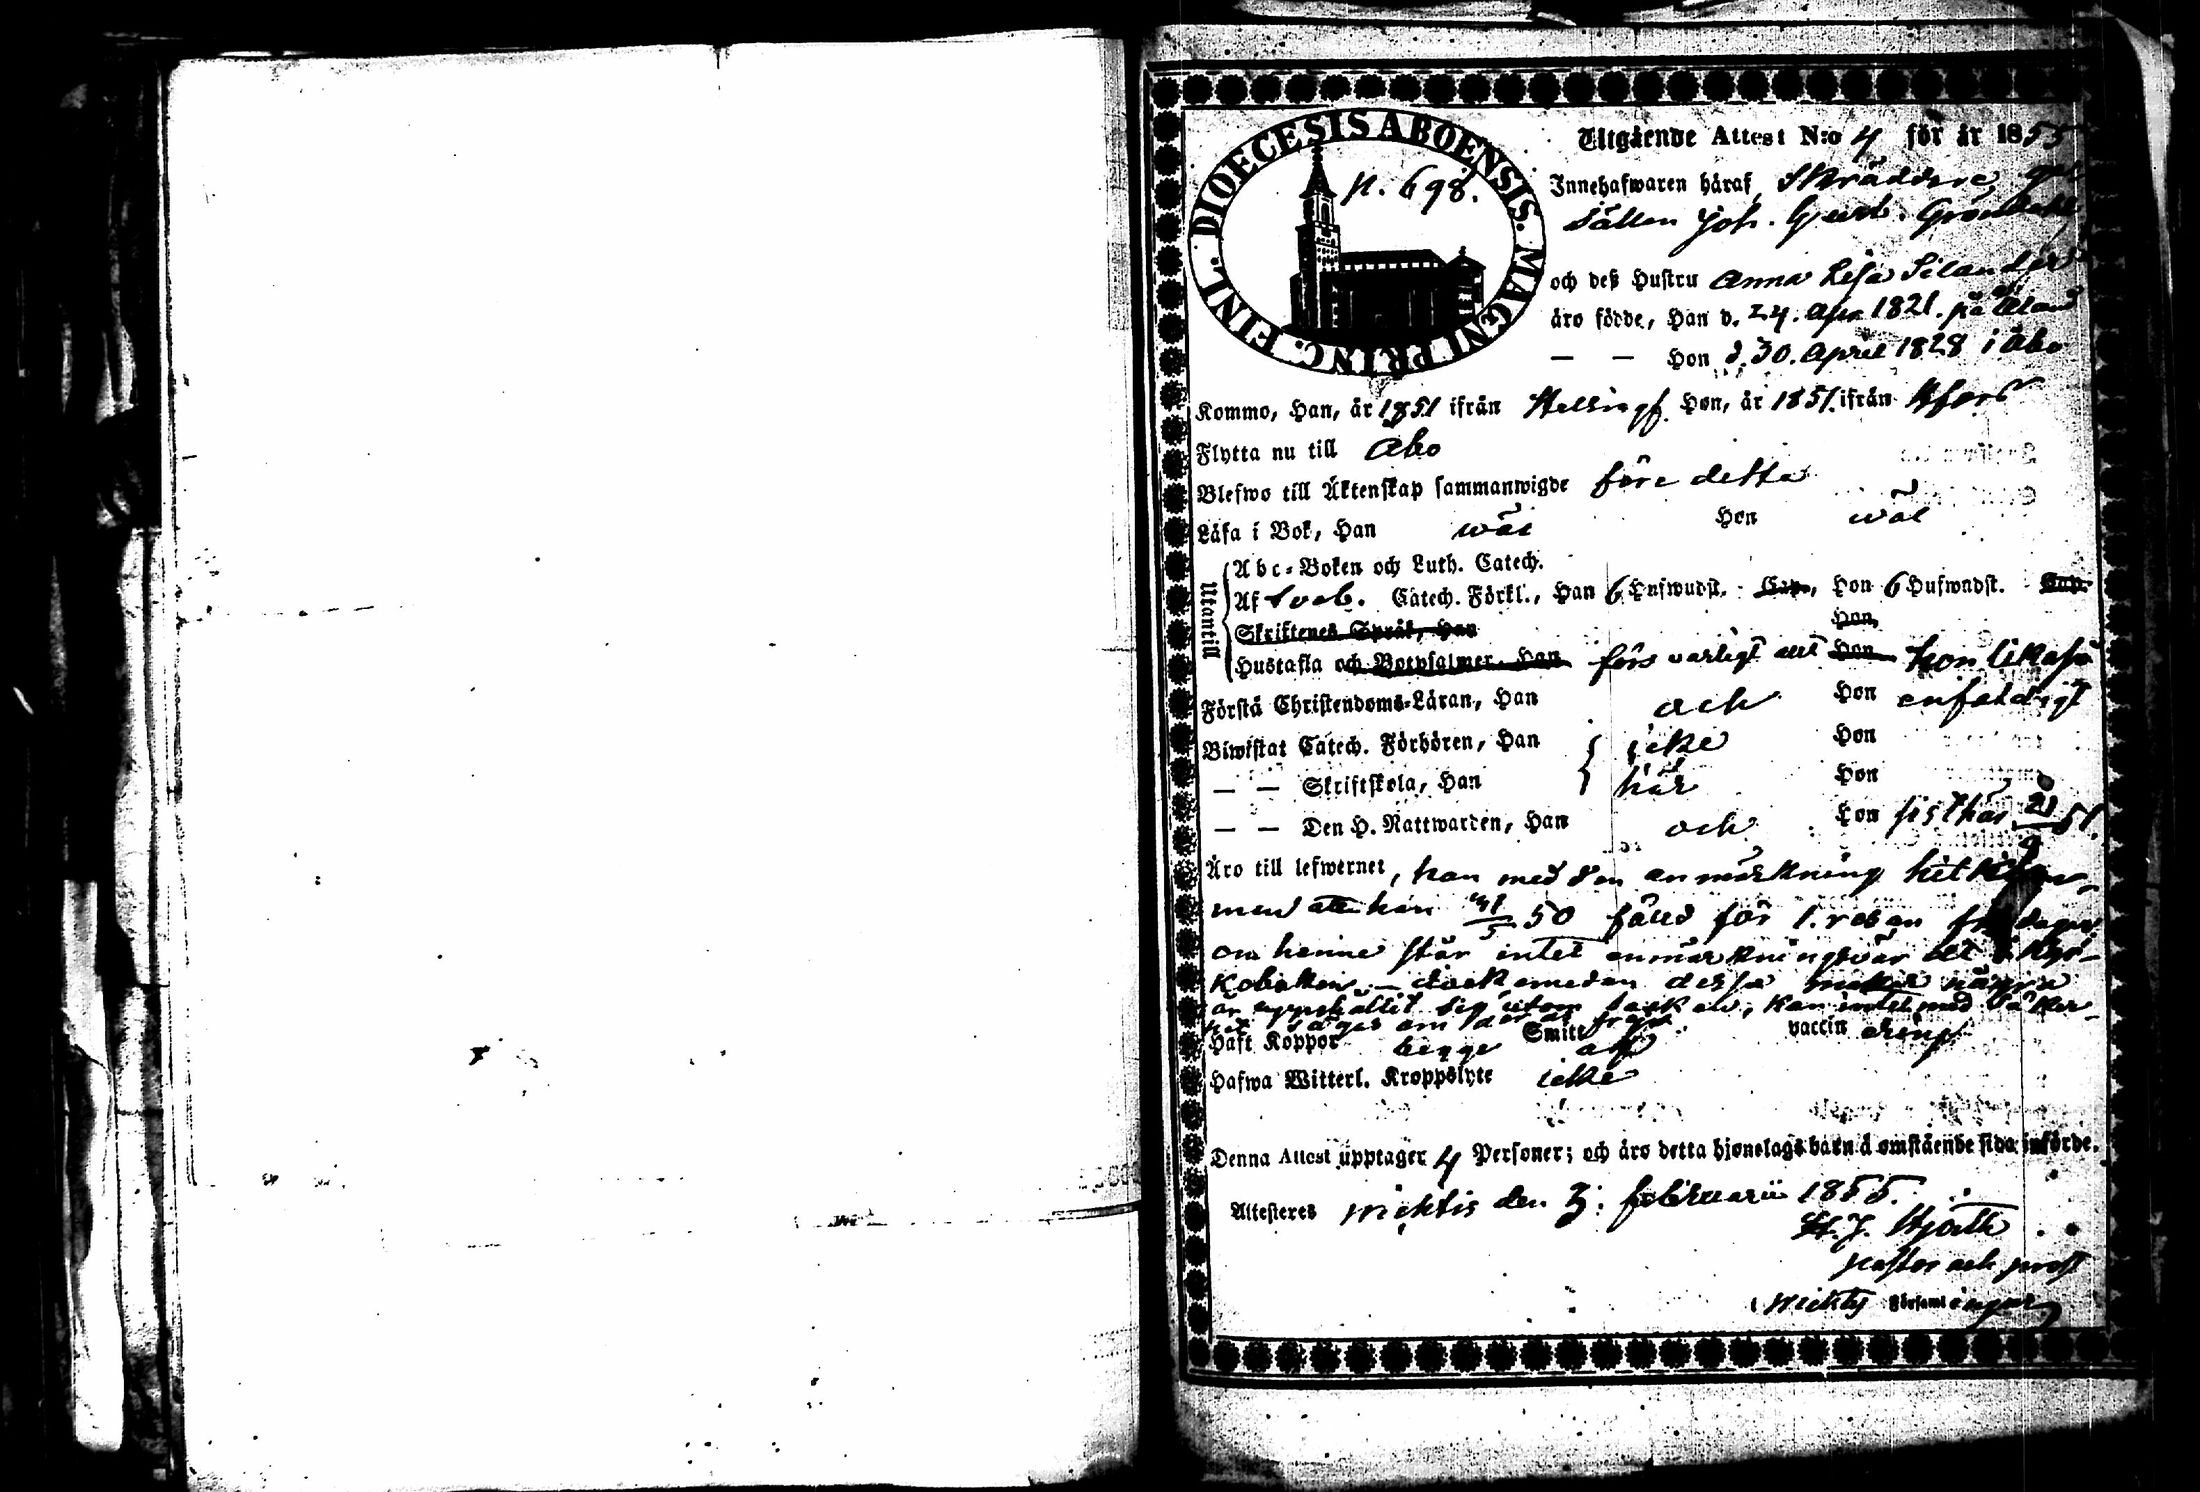 DIOECESIS ABOENSIS. MAGNI PRINC. FINL.
p. 698.
Utgående Attest N:o 4 för år 1855
Innehafwaren häraf, Skräddare
sällen Joh. Gust.
och deß Hustru Anna Lisa Silander
äro födde, Han d. 24. Apr 1821. på Åland
— — Hon d. 30. April 1828 i Åbo
Kommo, Han, år 1851 ifrån Helsingf. Hon, år 1851. ifrån
Flytta nu till Åbo
Blefwo till Äktenskap sammanwigde före detta
Läsa i Bok, Han wäl Hon wäl
Utantill
Abc-Boken och Luth. Catech.
Af Sveb. Catech. Förkl., Han 6 Hufwudst. Cap., Hon 6 Hufwudst. Cap.
Skriftenes Språk, Han Hon,
Hustafla och Botpsalmer, Han förswarligt allt Hon hon likaså
Förstå Christendoms-Läran, Han och Hon enfaldigt
Biwistat Catech. Förhören, Han { icke Hon
— — Skriftskola, Han här Hon
— — Den H. Nattwarden, Han och Hon sist här 51.
Äro till lefwernet, han med den anmärkning
men att han 50 fälld för 1. resan
om henne står intet anmärkningsvär
koboken — dock emedan dessa
sig utom socken, kan intet med säker-
het säges om deras frejd
Haft Koppor begge Smitt vaccin
Hafwa Witterl. Kroppslyte icke
Denna Attest upptager 4 Personer; och äro detta hjonelags barn å omstående sida införde.
Attesteres Wichtis den 3. februarii 1855.
H. J. Hjorth
pastor och prost
i Wichtis Församlingar